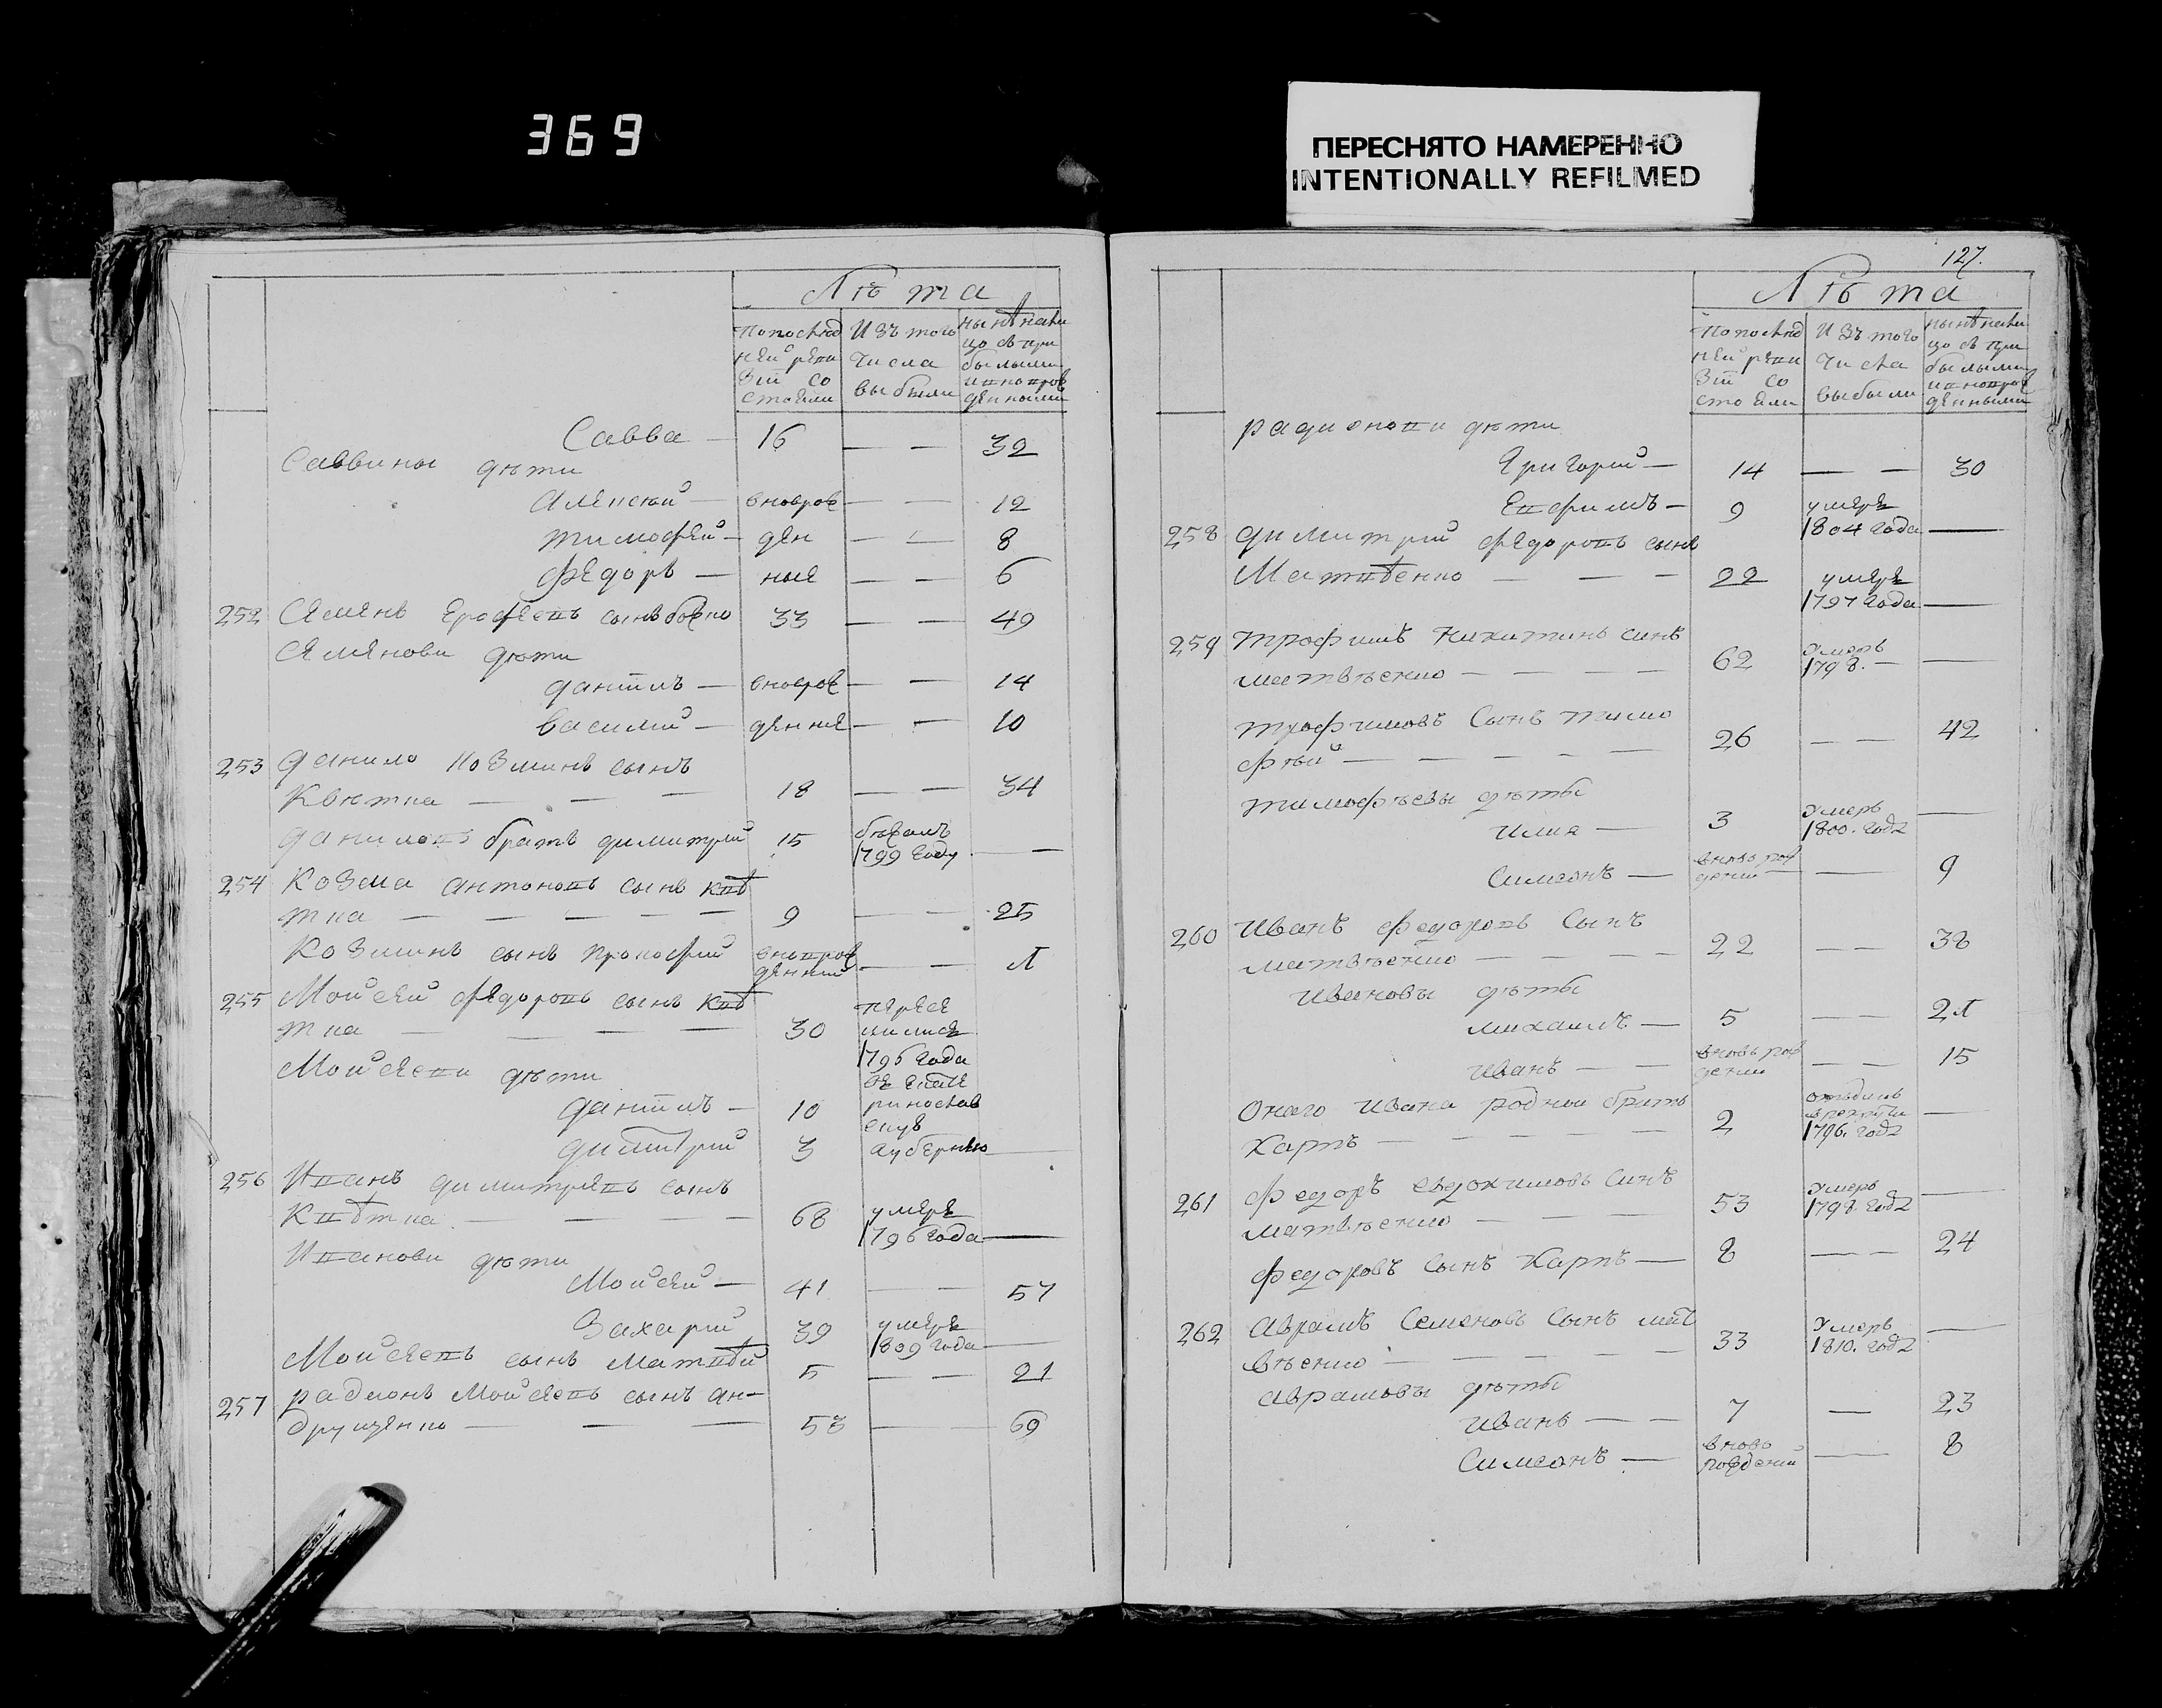 369
ПЕРЕСНЯТО НАМЕРЕННО
INTENTIONALLY REFILMED
Лѣта
По послѣд
ней реви
зіи со
стояли
Изъ того
числа
выбыли
Нынѣ на ли
цо съ при
былыми
и новорож
денными
Савва — 16 — — 32
Саввины дѣти
Алексѣй — вноврож — — 12
Тимофей — ден — — 8
Федоръ — ные — — 6
252 Семенъ Ерофеевъ сынъ 33 — — 49
Семенови дѣти
Даніилъ — вноврож — — 14
Василий — денние — — 10
253 Данило Козминъ сынъ
Квѣтка — — — 18 — — 34
Даниловъ братъ Димитрий 15 бѣжалъ
1799 году —
254 Козма Антоновъ сынъ Квѣ
тка — — — — — 9 — — 25
Козминъ сынъ Прокофий вноврож
денний — — Л
255 Мойсей Федоровъ сынъ Квѣ
тка — — — 30
пересе
лился
1796 года
Мойсееви дѣти
Даніилъ — 10
Димитрий 3
губернию —
256 Иванъ Димитревъ сынъ
Квѣтка — — — 68 умре
1796 года —
Иванови дѣти
Мойсей — 41 — — 57
Захарий 39 умре
1809 года —
Мойсеевъ сынъ Матвѣй 5 — — 21
257 Радионъ Мойсеевъ сынъ Ан-
друщенко — — — 53 — — 69
127.
Лѣта
По послѣд
ней реви
зіи со
стояли
Изъ того
числа
выбыли
Нынѣ на ли
цо съ при
былыми
и новорож
денными
Радионови дѣти
Григорий — 14 — — 30
Ефимъ — 9 умре
1804 года —
258 Димитрий Федоровъ сынъ
Матвѣенко — — — 22 умре
1797 года —
259 Трофимъ Никитинъ синъ
Матвѣенко — — — — 62 Умеръ
1798. — —
Трофимовъ Сынъ Тимо
фѣй — — — — — 26 — — 42
Тимофѣевы дѣты
Илия — 3 Умеръ
1800. года —
Симеонъ — вновь рож
дений — — 9
260 Иванъ Федоровъ Сынъ
Матвѣенко — — — — 22 — — 38
Ивановы дѣты
Михаилъ — 5 — — 2Л
Иванъ — — вновь рож
дений — — 15
Онаго Ивана родной братъ
Карпъ — — — — — 2
1796. года —
261 Федоръ Евдокимовъ Синъ
Матвѣенко — — — 53 Умеръ
1798. года —
Федоровъ Сынъ Карпъ — 8 — — 24
262 Аврамъ Семеновъ Сынъ Мат
вѣенко — — — — — 33 Умеръ
1810. года —
Аврамовы дѣты
Иванъ — — 7 — 23
Симеонъ — вновь
рожденій — 8